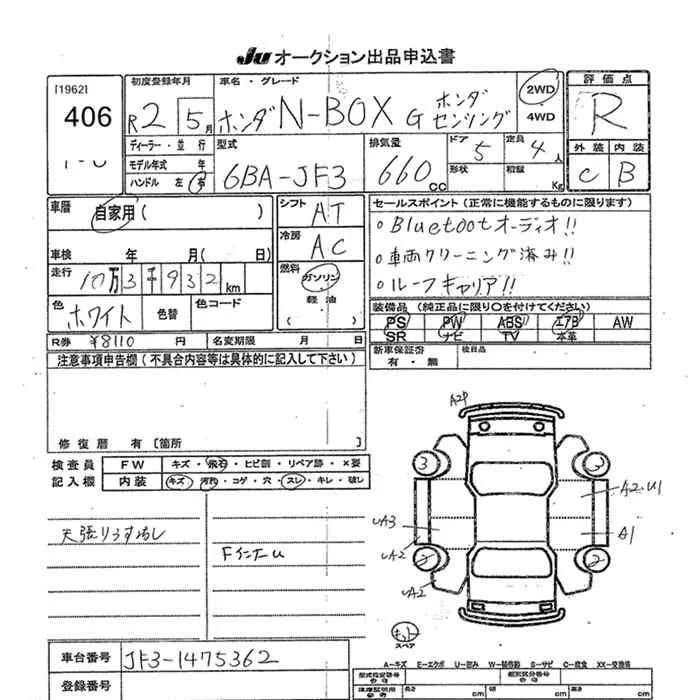 Ju オークション出品申込書
[1962]
406
初度登録年月
R2 5月
車名・グレード
ホンダ N-BOX G ホンダ センシング
2WD
4WD
評価点
R
外装 内装
C B
ディーラー・並行
モデル年式 年
ハンドル 左 右
型式
6BA-JF3
排気量
660cc
ドア 5
形状
定員 4人
積載 Kg
車歴 自家用( )
車検 年 月( 日)
走行 10万3千932km
色 ホワイト 色替 色コード
シフト AT
冷房 AC
燃料 ガソリン・軽油
( )
セールスポイント(正常に機能するものに限ります)
○Bluetootオーディオ!!
○車両クリーニング済み!!
○ルーフキャリア!!
装備品(純正品に限り○を付けてください)
PS PW ABS エアB AW
SR ナビ TV 本革
R券 ¥8110円 名変期限 月 日
新車保証書 有・無
後日品
注意事項申告欄(不具合内容等は具体的に記入して下さい)
修復歴 有〔箇所
検査員記入欄
FW キズ・飛石・ヒビ割・リペア跡・X要
内装 キズ・汚れ・コゲ・穴・スレ・キレ・破レ
FインナーU
A2P
3 3
A2.U1
UA3
A1
UA2
UA2
キット
スペア
車台番号 JF3-1475362
登録番号
A-キズ E-エクボ U-凹み W-補修跡 S-サビ C-腐食 XX-交換済
型式指定番号
類別区分番号
長 cm 幅 cm 高 cm